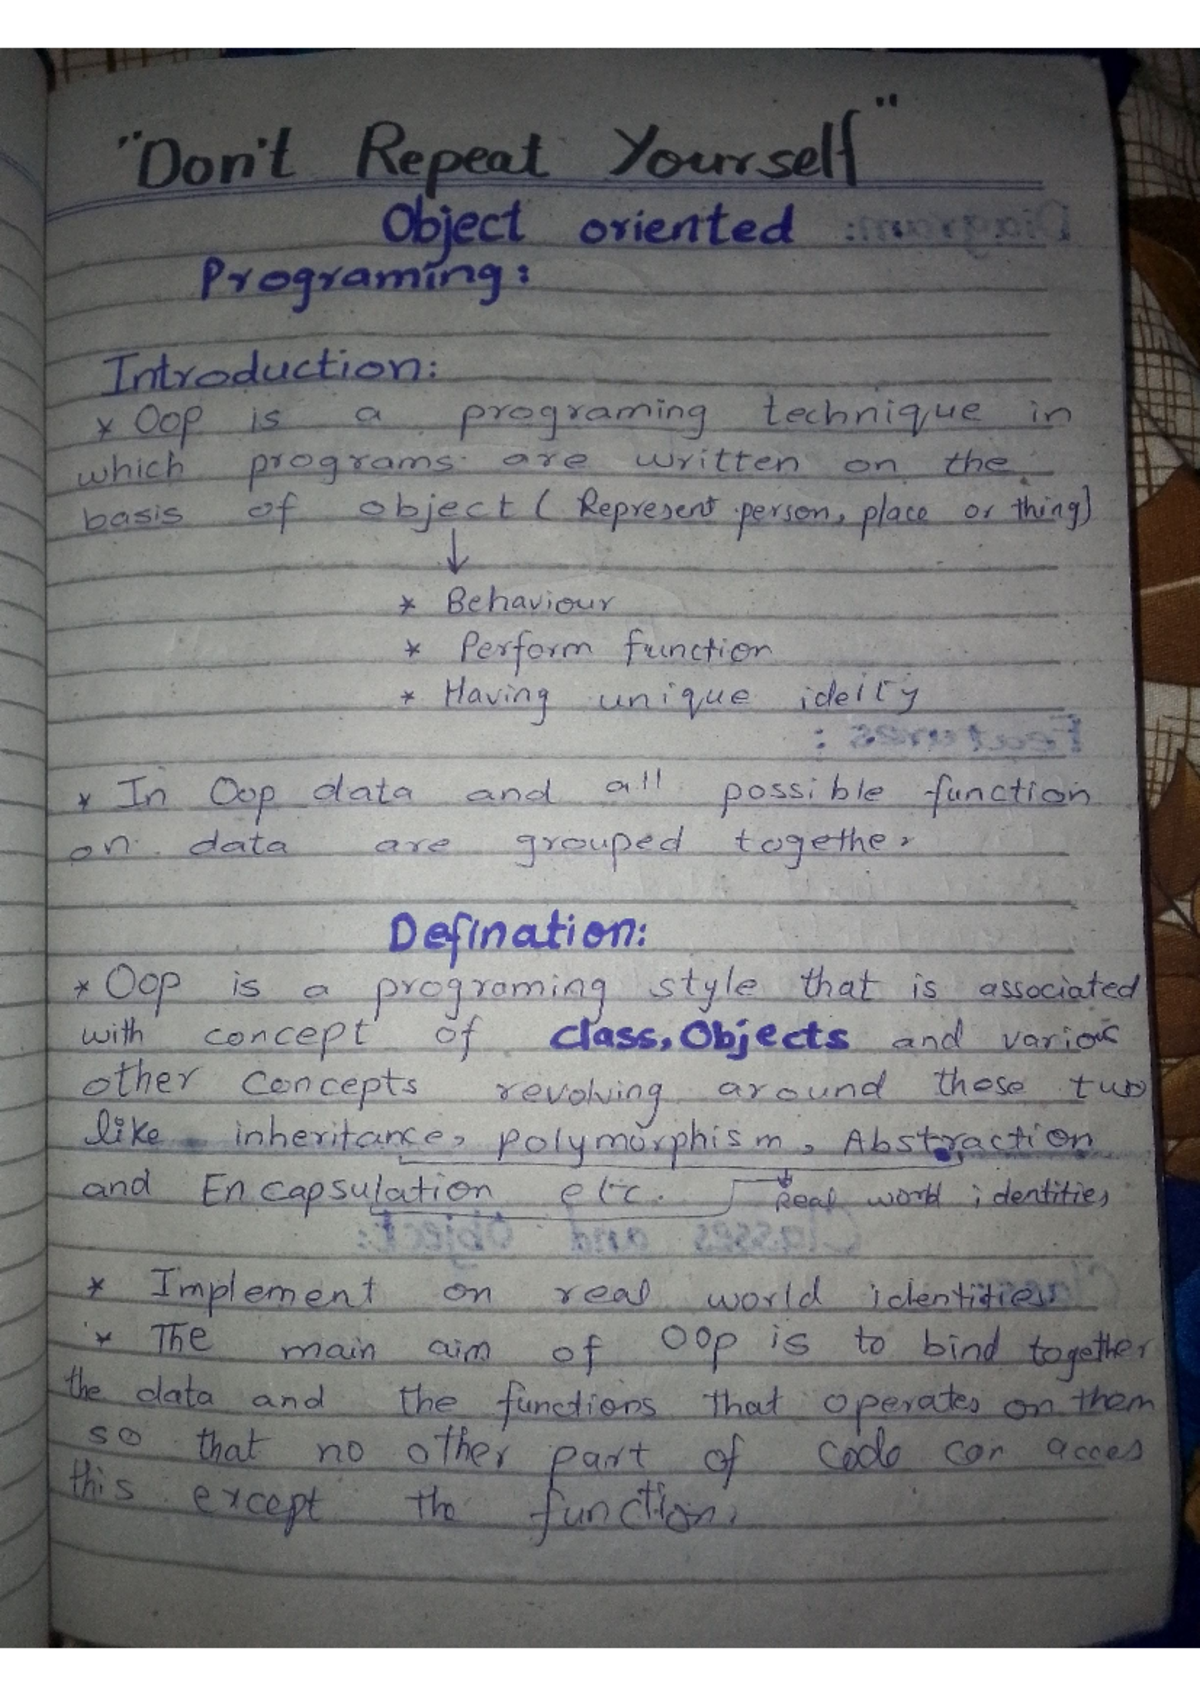 "Don't Repeat Yourself"
Object oriented
Programing:
Introduction:
* Oop is a programing technique in
which programs are written on the
basis of object ( Represent person, place or thing)
↓
* Behaviour
* Perform function
* Having unique ideity
* In Oop data and all possible function
on data are grouped together
Defination:
* Oop is a programing style that is associated
with concept of class, Objects and various
other concepts revolving around these two
like inheritance, polymorphism, Abstraction
and Encapsulation etc. Real world identities
* Implement on real world identities.
* The main aim of OOp is to bind together
the data and the functions that operates on them
so that no other part of code can acces
this except the function.